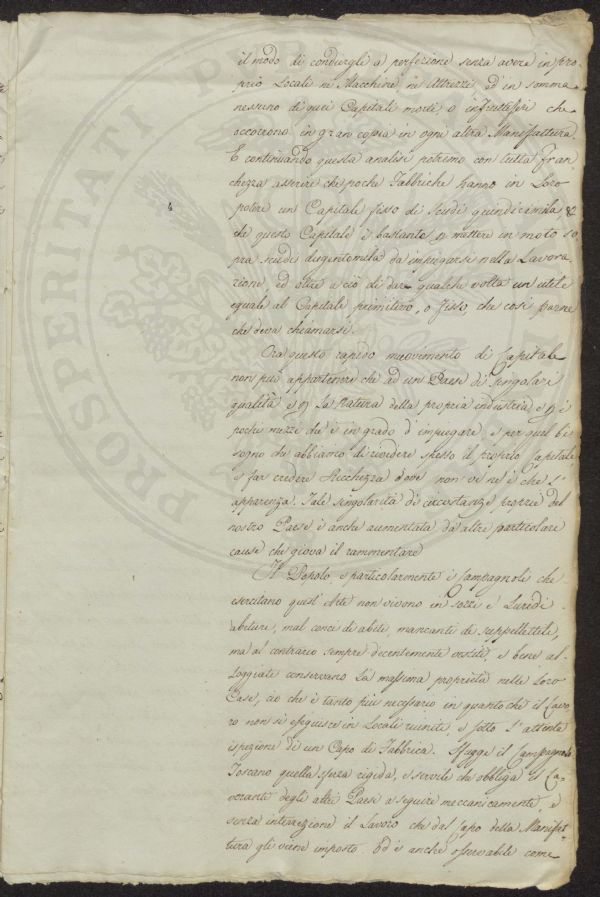 il modo di condurgli a perfezione senza avere in pro
prio Locali nè Macchine, nè Attrezzi, ed in somma
nessuno di quei Capitali morti, o infruttiferi che
occorrono in gran copia in ogni altra Manifattura
E continuando questa analisi potremo con tutta fran
chezza asserire che poche Fabbriche hanno in Loro
potere un Capitale fisso di Scudi quindicimila, &
che questo Capitale è bastante p mettere in moto so
pra scudi dugentomila da impiegarsi nella Lavora
zione, ed oltre a ciò di dare qualche volta un utile
eguale al Capitale primitivo, o fisso, che così parne
che deva chiamarsi.
Ora questo rapido muovimento di Capitale
non può appartenere che ad un Paese di singolari
qualità e p la natura della propria industria e p i
pochi mezzi che è in grado d'impiegare, e per quel bi
sogno che abbiamo di rivedere spesso il proprio Capitale
e far credere Ricchezza dove non vi nè è che l'
apparenza. Tale singolarità di circostanze proprie del
nostro Paese è anche aumentata da altre particolari
cause che giova il rammentare
Il Popolo e particolarmente i Campagnoli che
esercitano quest'Arte non vivono in sozzi e Luridi
abituri, mal conci di abiti, mancanti di suppellettili,
ma al contrario sempre decentemente vestiti, e bene al-
loggiati conservano la massima proprietà nelle Loro
Case, ciò che è tanto più necessario in quanto che il Lavo
ro non si eseguisce in Locali riuniti e sotto l'attenta
ispezione di un Capo di Fabbrica. Sfugge il Campagnolo
Toscano quella sferza rigida, e servile che obbliga il La-
vorante degli altri Paesi a seguire meccanicamente, e
senza interruzione il Lavoro che dal Capo della Manifat-
tura gli viene imposto. Ed è anche osservabile come
PROSPERITATI PUBL